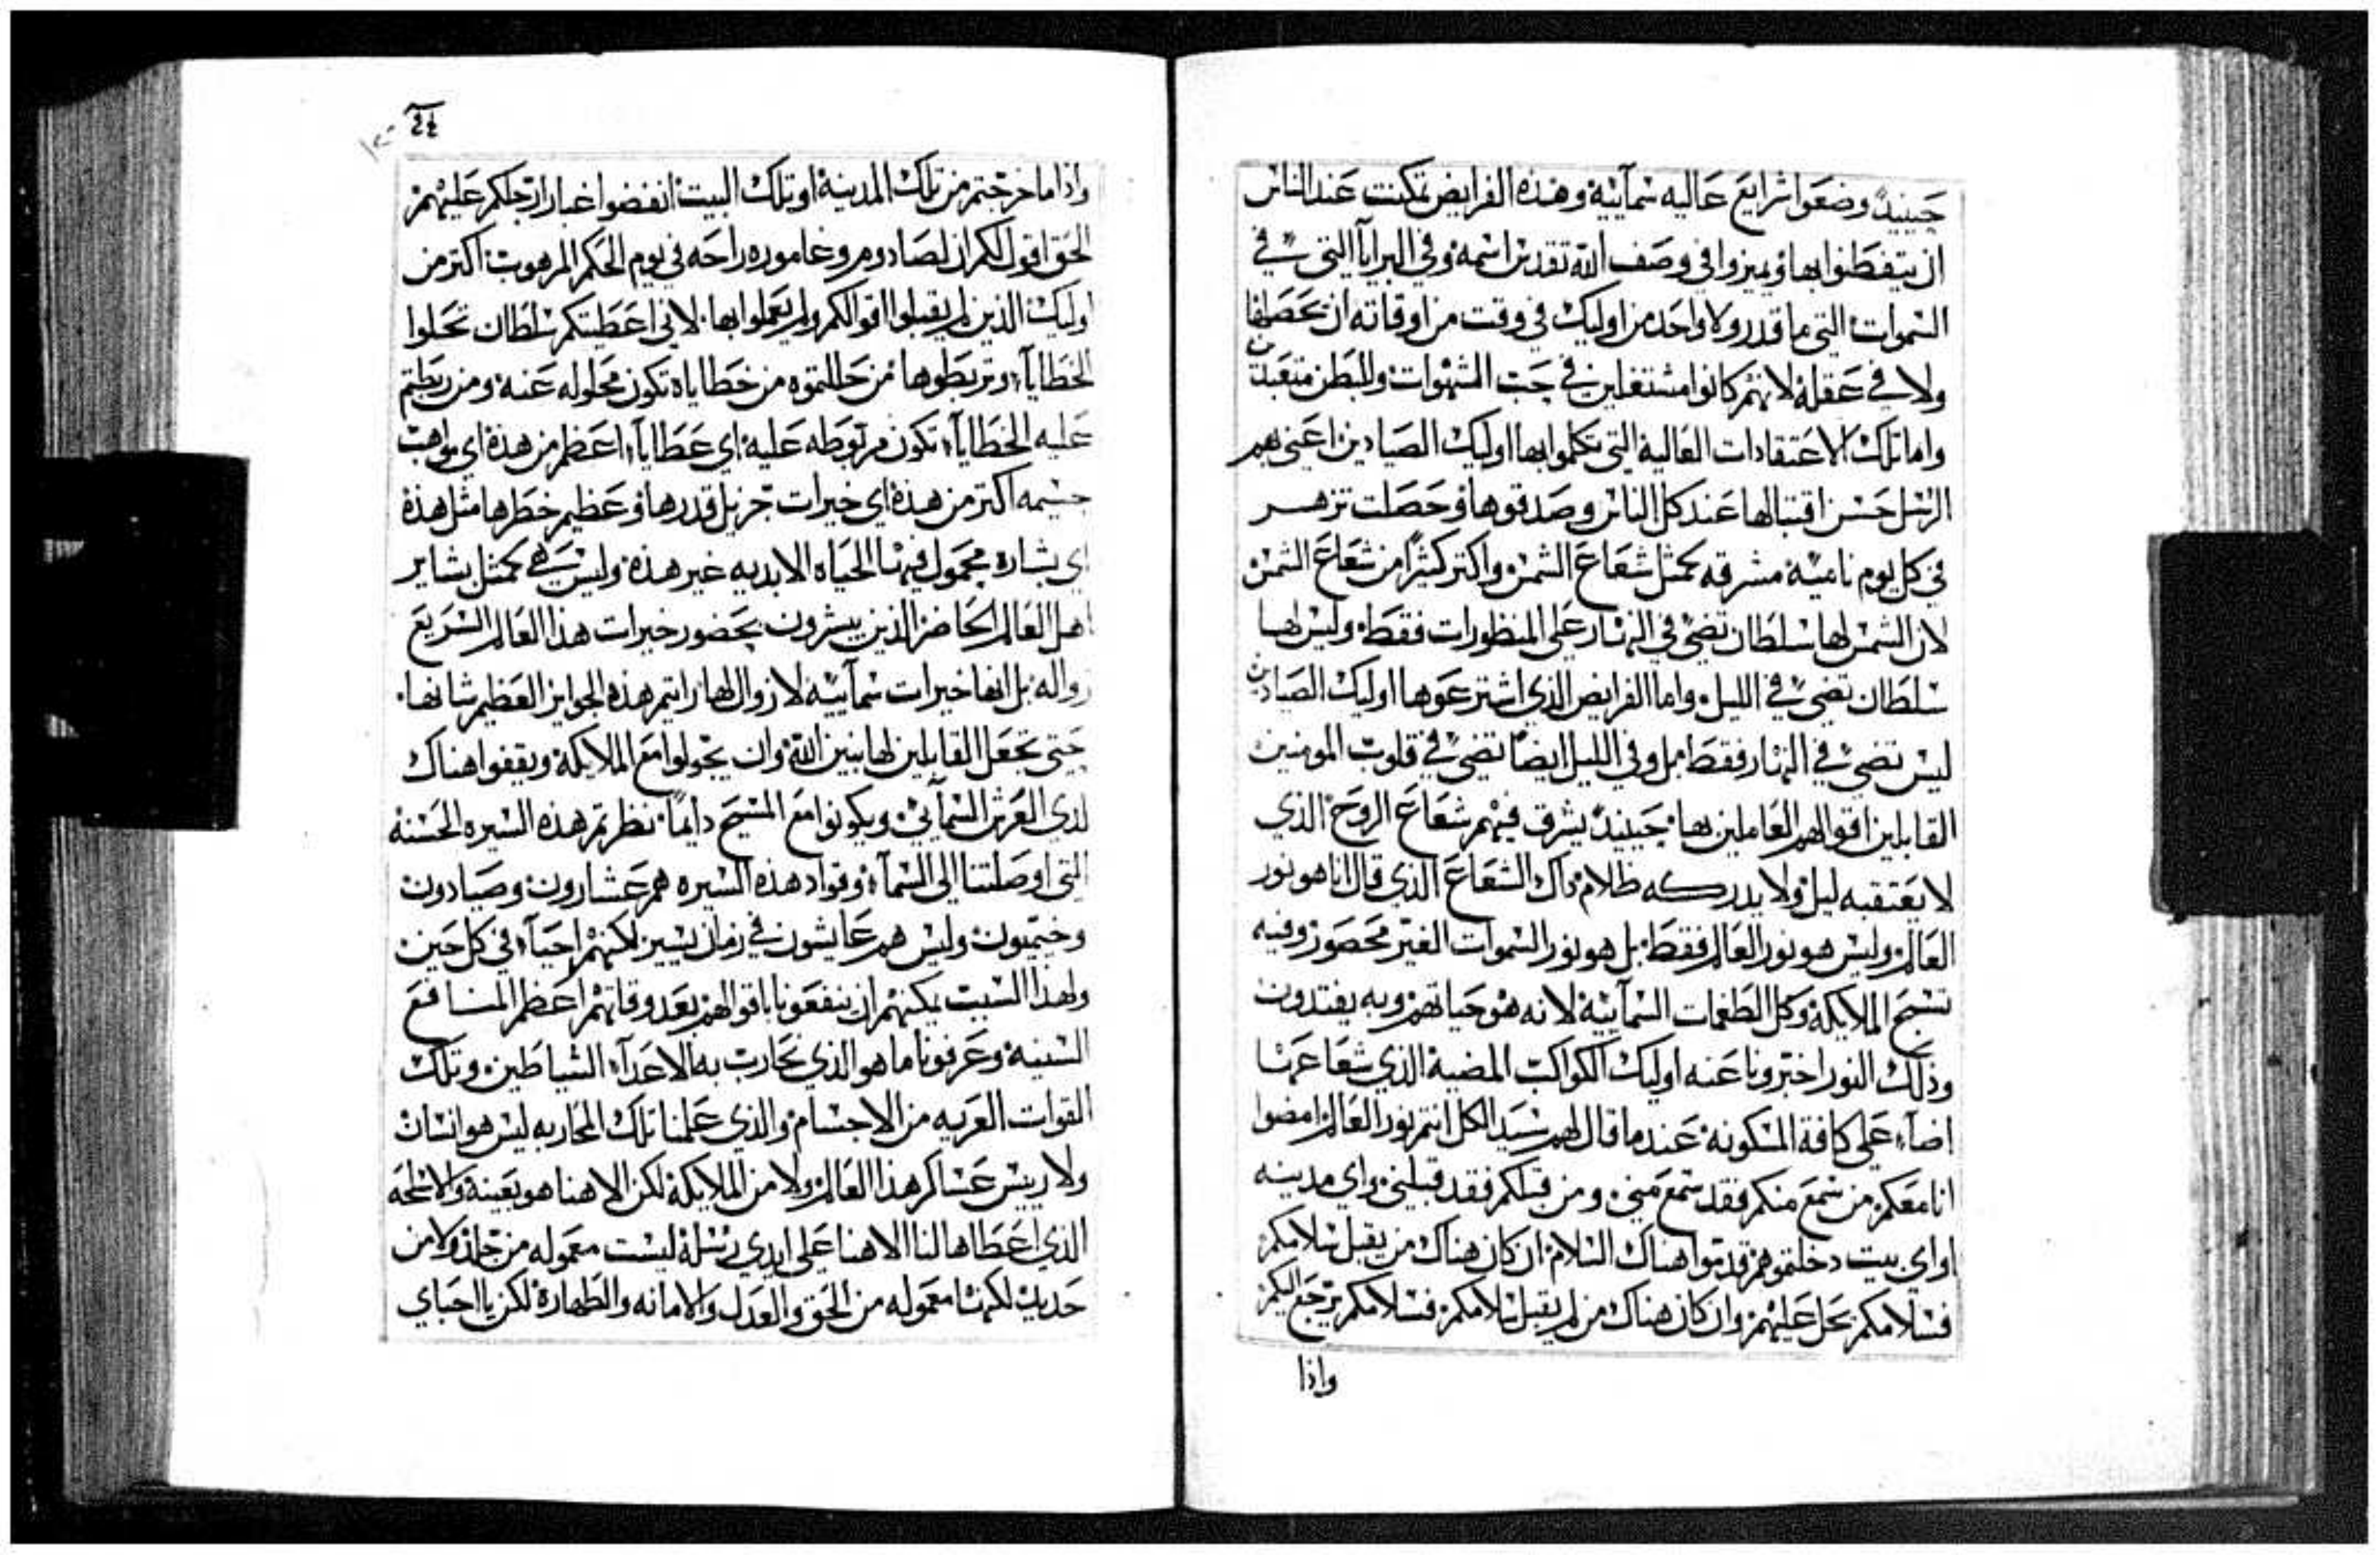 حينيذ وضعوا شرايع عاليه سمآييه وهذه الفرايض تمكنت عند الناس
ان يتفطنوا بها وبميزوا في وصف الله تقدس اسمه وفي البرايا التي في
السموات التي ما قدر ولا واحد من اوليك في وقت من اوقاته ان تحصلها
ولا في عقله لانهم كانوا مشتغلين في حب الشهوات وللبطن متعبدين
واما تلك الاعتقادات العالية التي تكلموا بها اوليك الصيادين اعني بهم
الرسل حسن اقتبالها عند كل الناس وصدقوها وحصلت تزهر
في كل يوم ناميه مشرقه كمثل شعاع الشمس واكتر كثيرًا من شعاع الشمس
لان الشمس لها سلطان تضي في النهار على المنظورات فقط وليس لها
سلطان تضي في الليل واما الفرايض الذي اشترعوها اوليك الصيادين
ليس تضي في النهار فقط بل وفي الليل ايضًا تضي في قلوب المومنين
القابلين اقوالهم العاملين بها حينيذ يشرق فيهم شعاع الروح الذي
لا يعتقبه ليل ولا يدركه ظلام داك الشعاع الذي قال انا هو نور
العالم وليس هو نور العالم فقط بل هو نور السموات الغير محصور وفيه
تسبح الملايكة وكل الطغمات السمآييه لانه هو حياتهم وبه يفتدون
وذلك النور اخبرونا عنه اوليك الكواكب المضية الذي شعاعهما
اضآء على كافة المسكونة عندما قال لهم سيد الكل انتم نور العالم امضوا
انا معكم من سمع منكم فقد سمع مني ومن قبلكم فقد قبلني واي مدينه
او اي بيت دخلتموهم قدموا هناك السلام ان كان هناك من يقبل سلامكم
فسلامكم يحل عليهم وان كان هناك من لم يقبل سلامكم فسلامكم يرجع اليكم
واذا
24
واذا ما خرجتم من تلك المدينة او تلك البيت انفضوا غبار ارجلكم عليهم
الحق اقول لكم ان لصادوم وغاموره راحه في يوم الحكم المرهوب اكتر من
اوليك الذين لم يقبلوا اقوالكم ولم يعملوا بها لاني اعطيتكم سلطان تحلوا
الخطايآ وتربطوها من حللتموه من خطاياه تكون محلوله عنه ومن ربطتم
عليه الخطايآ تكون مربوطه عليه اي عطايآ اعظم من هذة اي مواهب
جسيمه اكتر من هذة اي خيرات جزيل قدرها وعظيم خطرها مثل هذة
اي بشاره محمول فيها الحياه الابديه غير هذة وليس هي كمثل بشاير
اهل العالم الحاضر الذين يبشرون بحضور خيرات هذا العالم السريع
زواله بل انها خيرات سمآييه لا زوال لها رايتم هذه الجوايز العظيم شانها
حتى تجعل القابلين لها بنين الله وان يحولوا مع الملايكة ويقفوا هناك
لدى العرش السمآيي ويكونوا مع المسيح دايمًا نظرتم هذه السيره الحسنه
التي اوصلتنا الى السمآء وقواد هذه السيره هم عشارون وصيادون
وخيميون وليس هم عايشون في زمان يسير لكنهم احيآء في كل حين
ولهذا السبب يمكنهم ان ينفعونا باقوالهم بعد وفاتهم اعظم المنافع
السنيه وعرفونا ما هو الذي نحارب به الاعدآء الشياطين وتلك
القوات العريه من الاجسام والذي علمنا تلك المحاربه ليس هو انسان
ولا رييس عساكر هذا العالم ولا من الملايكة لكن الاهنا هو بعينه والاسلحه
الذي اعطاها لنا الاهنا على ايدي رسله ليست معموله من جلد ولا من
حديد لكنها معموله من الحق والعدل والامانه والطهارة لكن يا احباي